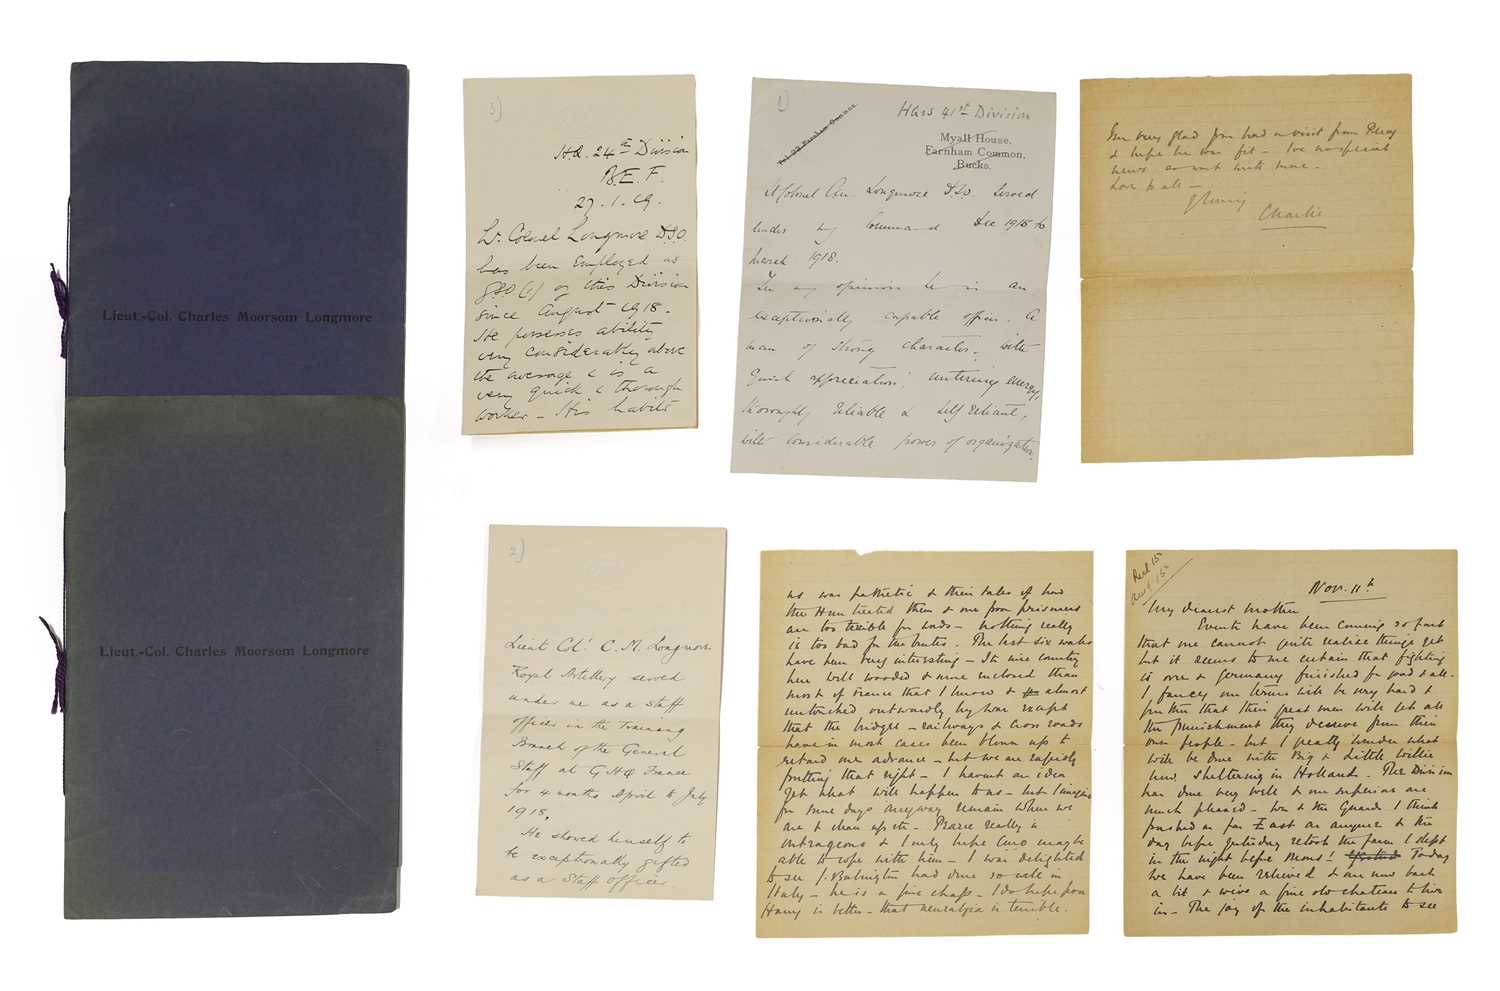 Lieut.-Col. Charles Moorsom Longmore
Lieut.-Col. Charles Moorsom Longmore
3)
H.Q. 24th Division
B.E.F.
27.1.19.
Lt. Colonel Longmore D.S.O.
has been employed as
GSO (1) of this Division
since August 1918.
He possesses ability
very considerably above
the average & is a
very quick & thorough
worker - His habits
1)
Tel. Farnham Common
Hqrs 41st Division
Myall House,
Farnham Common,
Bucks.
Lt Colonel Longmore D.S.O. served
under my Command Dec 1915 to
March 1918.
In my opinion he is an
exceptionally capable officer. A
man of strong character, with
quick appreciation, untiring energy,
thoroughly reliable & self reliant,
with considerable power of organization.
I'm very glad you had a visit from Percy
& hope he was fit - I've no special
news so won't write more.
Love to all -
Charlie
2)
Lieut Col. C. M. Longmore
Royal Artillery served
under me as a Staff
officer in the Training
Branch of the General
Staff at GHQ France
for 4 months April to July
1918.
He showed himself to
be exceptionally gifted
as a Staff Officer.
us was pathetic & their tales of how
the Hun treated them & our poor prisoners
are too terrible for words - nothing really
is too bad for the brutes. The last six weeks
have been very interesting - Its nice country
here well wooded & more enclosed than
most of France that I know & almost
untouched outwardly by war except
that the bridges - railways & cross roads
have in most cases been blown up to
retard our advance - but we are rapidly
putting that right - I havent an idea
yet what will happen to us - but I imagine
for some days anyway remain where we
are & clean up etc - Peace really is
outrageous & I only hope may be
able to cope with him - I was delighted
to see J. Babington had done so well in
Italy - he is a fine chap - I do hope poor
Harry is better - that neuralgia is terrible.
Recd 15th
15th
Nov. 11th
My dearest Mother
Events have been coming so fast
that one cannot quite realise things yet
but it seems to me certain that fighting
is over & Germany finished for good & all.
I fancy our terms will be very hard &
further that their great men will get all
the punishment they deserve from their
own people - but I greatly wonder what
will be done with Big & Little Willie
now sheltering in Holland. The Division
has done very well & our superiors are
much pleased - We & the Guards I think
pushed as far East as anyone & the
day before yesterday we took the farm I slept
in the night before Mons! Today
we have been relieved & are now back
a bit & we've a fine old chateau to live
in - The joy of the inhabitants to see